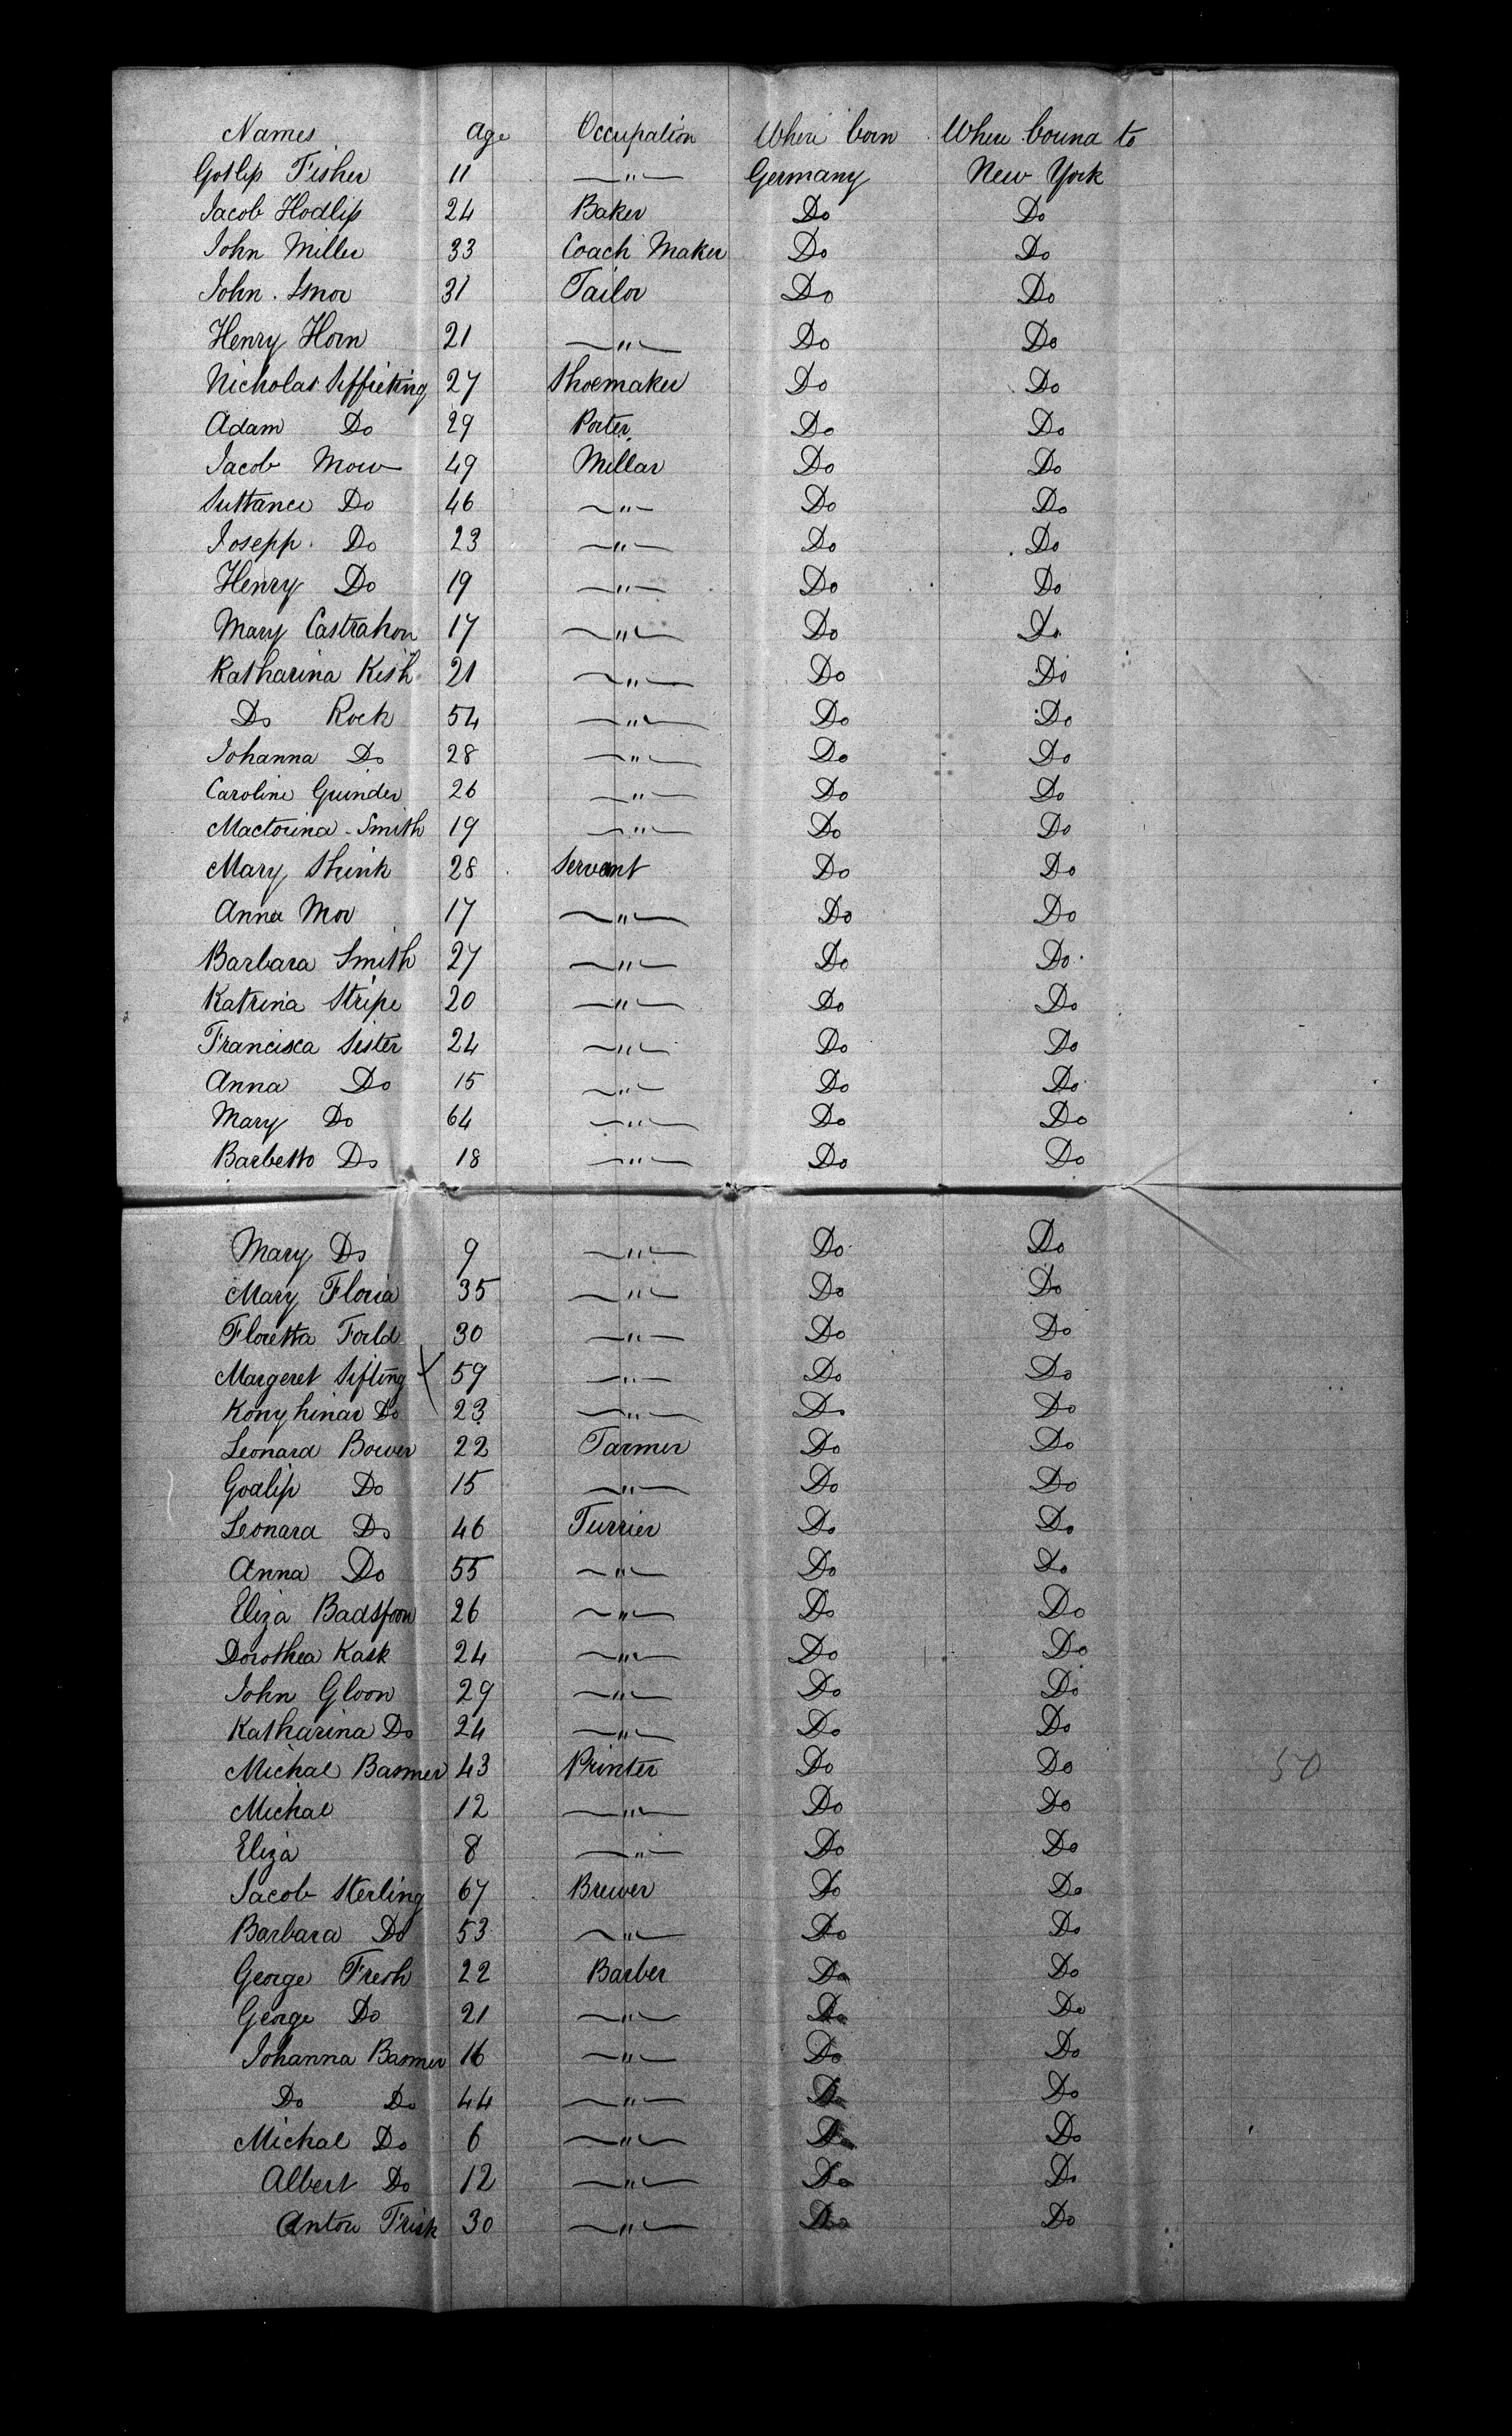 Names Age Occupation Where born Where bound to
Gotlip Fisher 11 —"— Germany New York
Jacob Hodlip 24 Baker Do Do
John Miller 33 Coach Maker Do Do
John Smor 31 Tailor Do Do
Henry Horn 21 —"— Do Do
Nicholas Siffrieting 27 Shoemaker Do Do
Adam Do 29 Porter Do Do
Jacob Mow 49 Millar Do Do
Suttance Do 46 —"— Do Do
Josepp Do 23 —"— Do Do
Henry Do 19 —"— Do Do
Mary Castrahon 17 —"— Do Do
Katharina Kish 21 —"— Do Do
Do Rock 54 —"— Do Do
Johanna Do 28 —"— Do Do
Caroline Guinder 26 —"— Do Do
Mactorina Smith 19 —"— Do Do
Mary Shink 28 Servant Do Do
Anna Mor 17 —"— Do Do
Barbara Smith 27 —"— Do Do
Katrina Stripe 20 —"— Do Do
Francisca Sister 24 —"— Do Do
Anna Do 15 —"— Do Do
Mary Do 64 —"— Do Do
Barbetto Do 18 —"— Do Do
Mary Do 9 —"— Do Do
Mary Floria 35 —"— Do Do
Floretta Forld 30 —"— Do Do
Margeret Sifting 59 —"— Do Do
Konyhinar Do 23 —"— Do Do
Leonard Bower 22 Farmer Do Do
Godlip Do 15 —"— Do Do
Leonard Do 46 Furrier Do Do
Anna Do 55 —"— Do Do
Eliza Badspoon 26 —"— Do Do
Dorothea Kask 24 —"— Do Do
John Gloon 29 —"— Do Do
Katharina Do 24 —"— Do Do
Michal Basmer 43 Printer Do Do 50
Michal 12 —"— Do Do
Eliza 8 —"— Do Do
Jacob Sterling 67 Brewer Do Do
Barbara Do 53 —"— Do Do
George Fresh 22 Barber Do Do
George Do 21 —"— Do Do
Johanna Basmer 16 —"— Do Do
Do Do 44 —"— Do Do
Michal Do 6 —"— Do Do
Albert Do 12 —"— Do Do
Anton Frisk 30 —"— Do Do